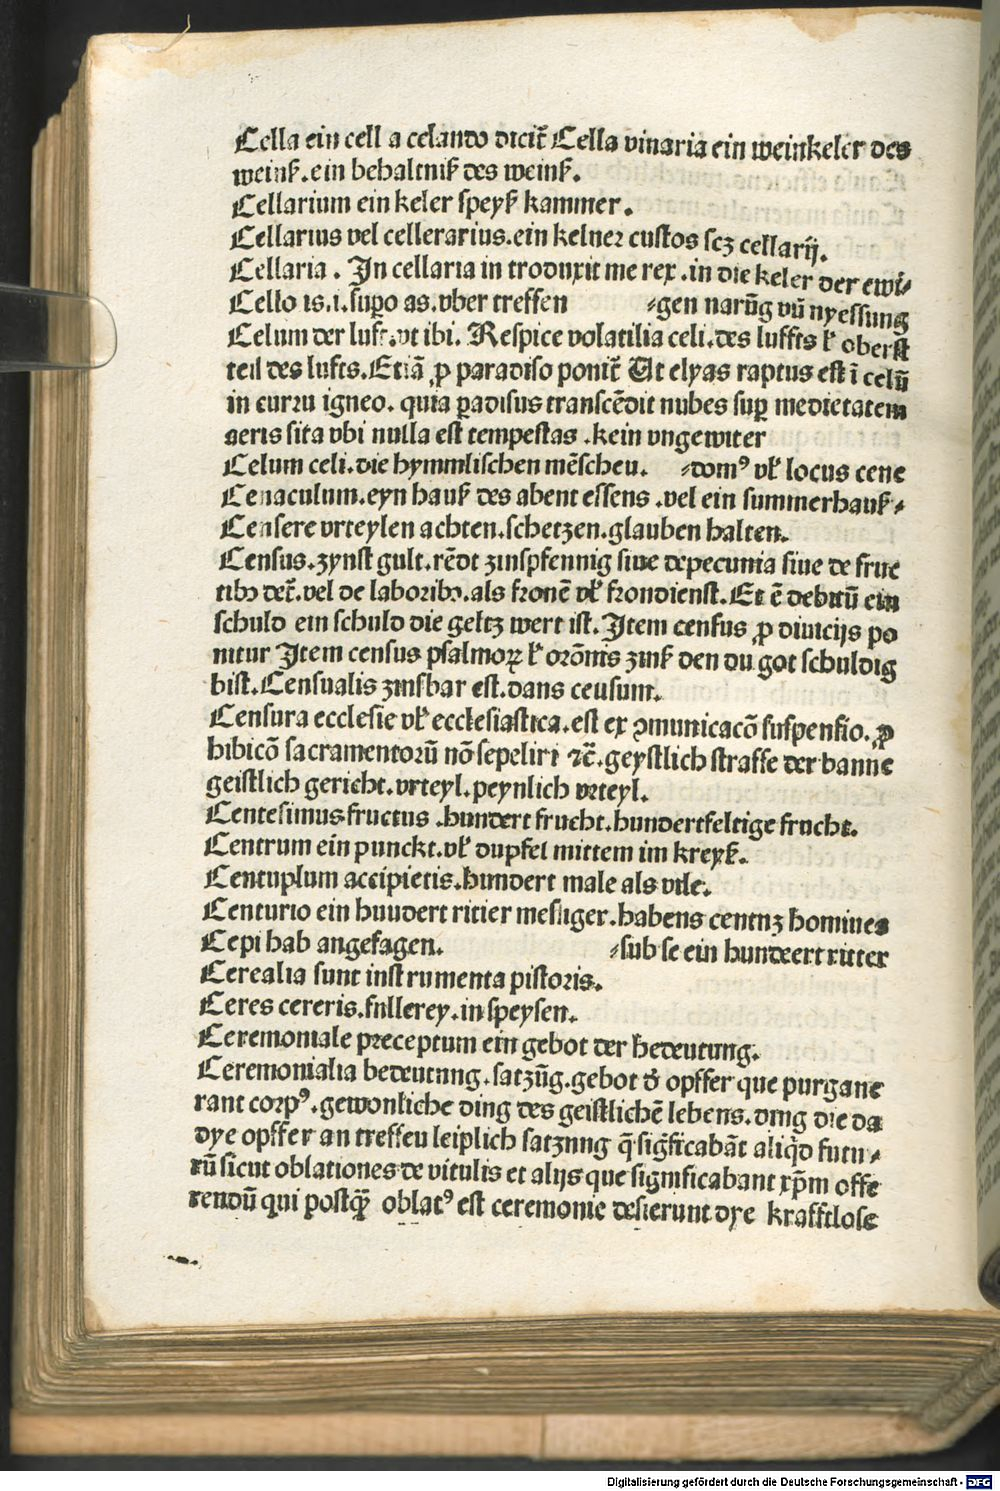 Cella ein cell a celando dicit̃ Cella vinaria ein weinkeler des
weinß.ein behaltniß des weinß.
Cellarium ein keler speyß kammer.
Cellarius vel cellerarius.ein kelner custos scꝫ cellarij.
Cellaria . In cellaria in troduxit me rex .in die keler der ewi⸗
Cello is.i.suꝑo as.vber treffen ⸗gen narũg vñ nyessung
Celum der luft.vt ibi. Respice volatilia celi.des luffts ł oberst
teil des lufts.Etiã ꝓ paradiso ponit̃ Ut elyas raptus est ĩ celũ
in curru igneo. quia ꝑadisus transcẽdit nubes suꝑ medietatem
aeris sita vbi nulla est tempestas .kein vngewiter
Celum celi.die hymmlischen mẽscheu. ⸗domꝰ vł locus cene
Cenaculum.eyn hauß des abent essens .vel ein summerhauß⸗
Censere vrteylen achten.schetzen.glauben halten.
Census.zynst gult.rẽdt zinspfennig siue depecunia siue de fruc
tibꝫ det̃.vel de laboribꝫ.als fronẽ vł frondienst. Et ẽ debitũ ein
schuld ein schuld die geltz wert ist. Item census ꝓ diuicijs po
nitur Item census psalmoꝝ ł orõnis zinß den du got schuldig
bist.Censualis zinsbar est.dans ceusum.
Censura ecclesie vł ecclesiastica.est ex ꝯmunicacõ suspensio. ꝓ
hibicõ sacramentorũ nõ sepeliri ⁊c̃.geystlich straffe der banne
geistlich gericht.vrteyl.peynlich vrteyl.
Centesimus fructus .hundert frucht.hundertfeltige frucht.
Centrum ein punckt.vł dupfel mittem im kreyß.
Centuplum accipietis.hundert male als vile.
Centurio ein huudert ritter messiger.habens centnꝫ homines
Cepi hab angefagen. ⸗sub se ein hundeert ritter
Cerealia sunt instrumenta pistoris.
Ceres cereris.fullerey.in speysen.
Ceremoniale preceptum ein gebot der bedeutung.
Ceremonialia bedeutung.satzũg.gebot đ opffer que purgane
rant corpꝰ.gewonliche ding des geistlichẽ lebens.ding die da
dye opffer an treffeu leiplich satznng q̃ sigñficabãt aliq̇d futu⸗
rũ sicut oblationes de vitulis et alijs que significabant xp̃m offe
rendũ qui postq̃ oblatꝰ est ceremonie desierunt dye krafftlose
Digitalisierung gefördert durch die Deutsche Forschungsgemeinschaft - DFG